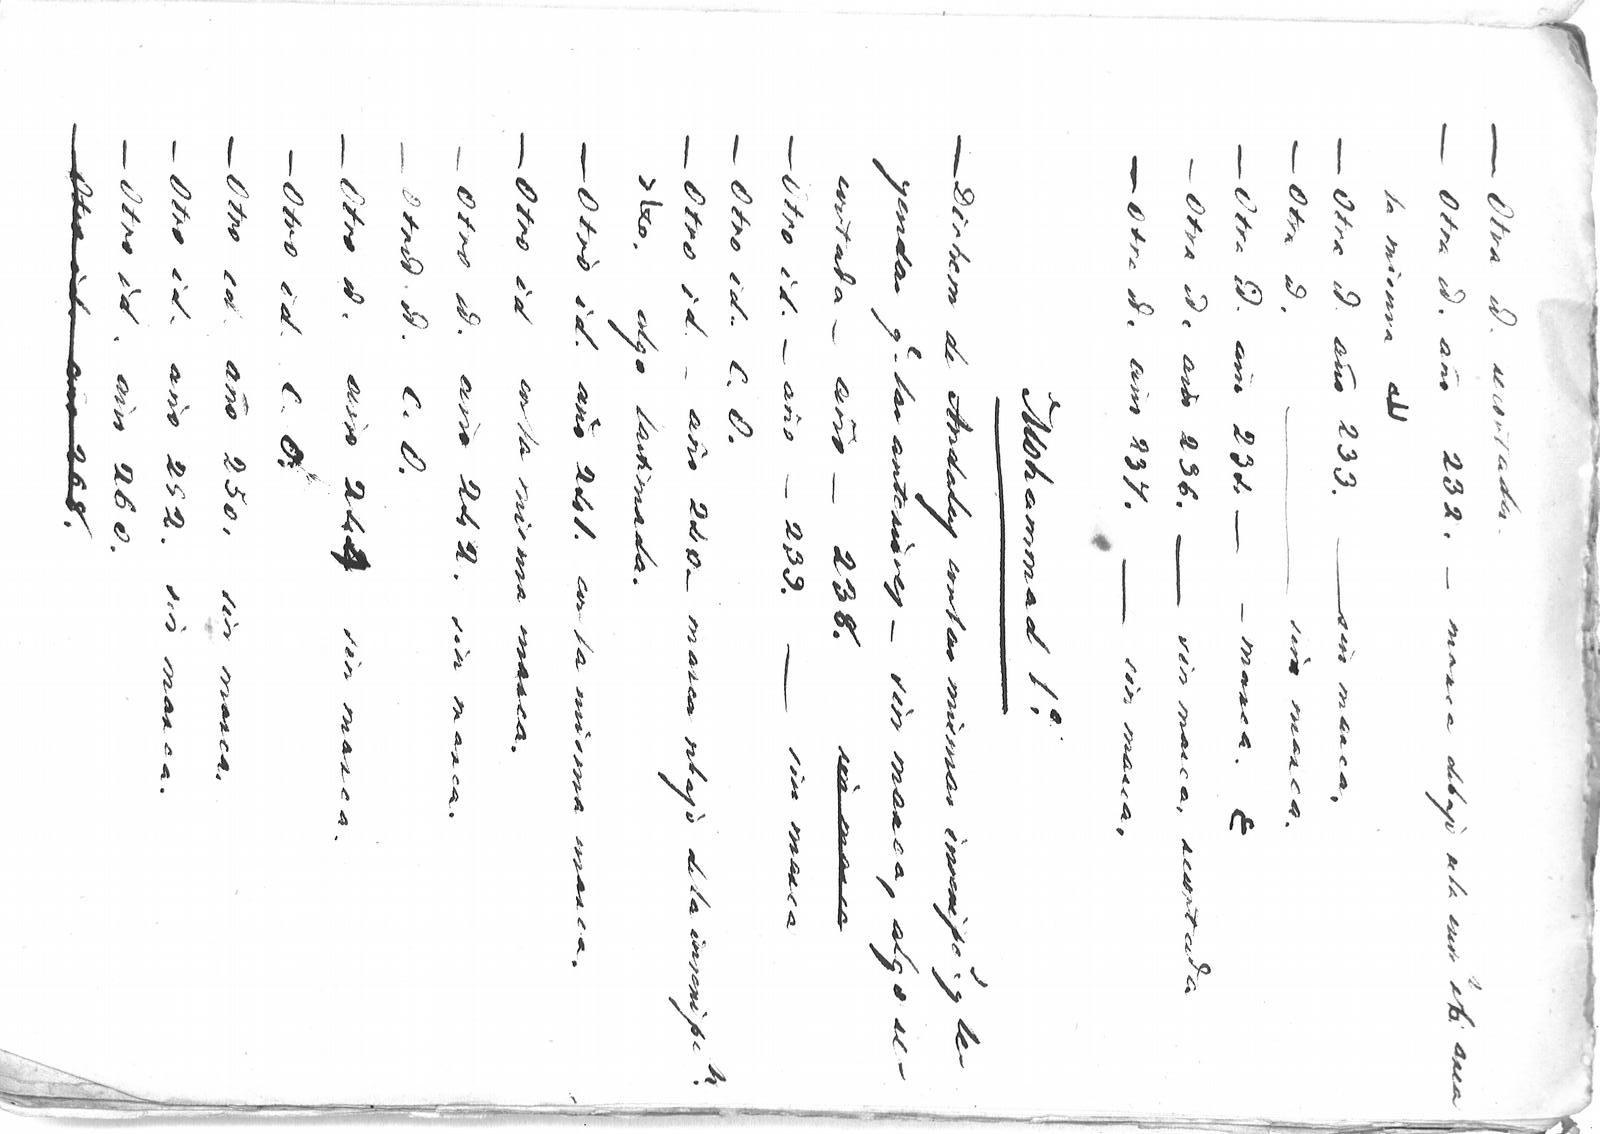 — Otra id. recortada.
— Otra id. año 232. — marca debajo de la inscr.n del area
la misma
— Otra id. año 233. — sin marca.
— Otra id. — sin marca.
— Otra id. año 23 — marca.
— Otra id. año 236. — sin marca, recortada
— Otra id. año 237. — sin marca.
Mohammad 1.º
— Dirhem de Andaluz con las mismas inscrip.s y le-
yendas q.e los anteriores — sin marca, algo re-
cortada — año — 238. sin marca
— Otro id. — año — 239. — sin marca
— Otro id. C. O.
— Otro id. — año 240 — marca debajo de la inscrip.n
algo lastimada.
— Otro id. año 241. con la misma marca.
— Otro id con la misma marca.
— Otro id. año 242. sin marca.
— Otro id. C. O.
— Otro id. año 244 sin marca.
— Otro id. C. O.
— Otro id. año 250. sin marca.
— Otro id. año 252. sin marca.
— Otro id. año 260.
— Otro id. año 268.